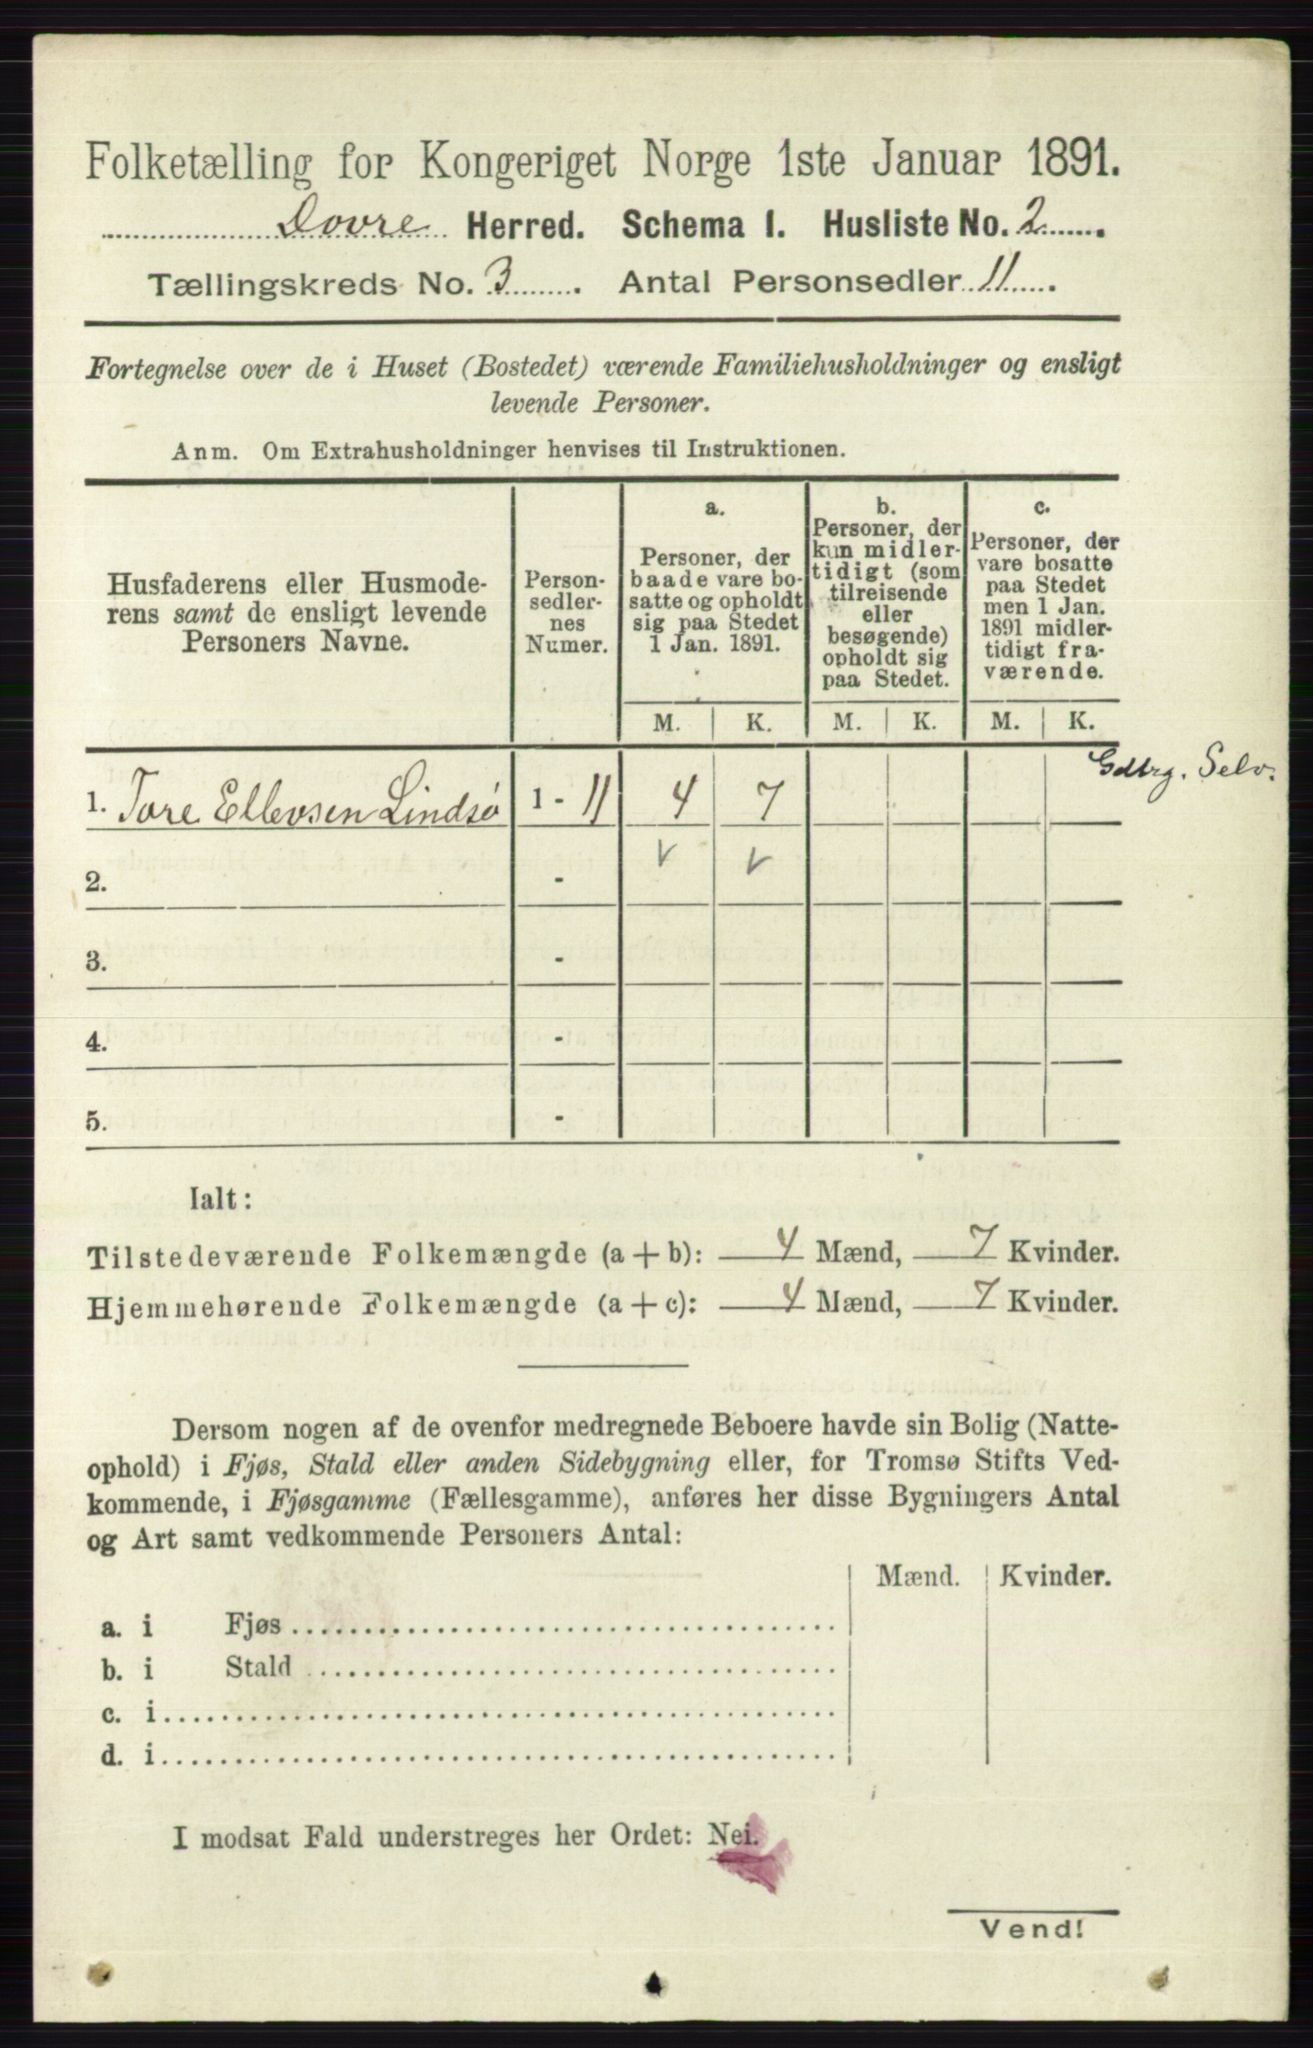 Folketælling for Kongeriget Norge 1ste Januar 1891.
Dovre Herred. Schema I. Husliste No. 2
Tællingskreds No. 3. Antal Personsedler 11.
Fortegnelse over de i Huset (Bostedet) værende Familiehusholdninger og ensligt
levende Personer.
Anm. Om Extrahusholdninger henvises til Instruktionen.
Husfaderens eller Husmode-
rens samt de ensligt levende
Personers Navne.
Person-
sedler-
nes
Numer.
a.
Personer, der
baade vare bo-
satte og opholdt
sig paa Stedet
1 Jan. 1891.
b.
Personer, der
kun midler-
tidigt (som
tilreisende
eller
besøgende)
opholdt sig
paa Stedet.
c.
Personer, der
vare bosatte
paa Stedet
men 1 Jan.
1891 midler-
tidigt fra-
værende.
M. K. M. K. M. K.
Gdbrg. Selv.
1. Tore Ellevsen Lindsø 1 - 11 4 7
2. - v v
3. -
4. -
5. -
Ialt:
Tilstedeværende Folkemængde (a + b): 4 Mænd, 7 Kvinder.
Hjemmehørende Folkemængde (a + c): 4 Mænd, 7 Kvinder.
Dersom nogen af de ovenfor medregnede Beboere havde sin Bolig (Natte-
ophold) i Fjøs, Stald eller anden Sidebygning eller, for Tromsø Stifts Ved-
kommende, i Fjøsgamme (Fællesgamme), anføres her disse Bygningers Antal
og Art samt vedkommende Personers Antal:
Mænd. Kvinder.
a. i Fjøs
b. i Stald
c. i
d. i
I modsat Fald understreges her Ordet: Nei.
Vend!